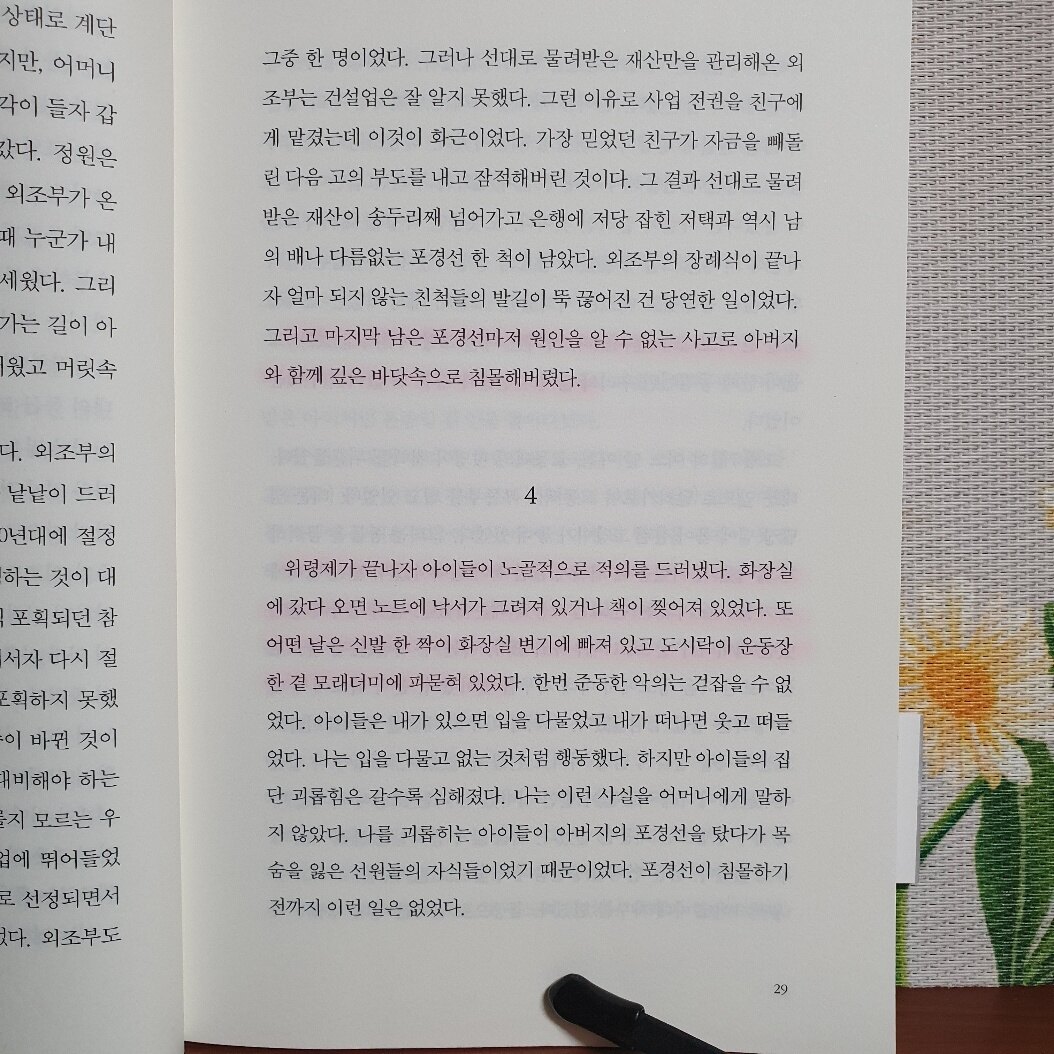 상태로 계단
지만, 어머니
각이 들자 갑
갔다. 정원은
외조부가 온
때 누군가 내
세웠다. 그리
가는 길이 아
머릿속
다. 외조부의
낱낱이 드러
0년대에 절정
하는 것이 대
포획되던 참
서자 다시 절
포획하지 못했
이 바뀐 것이
대비해야 하는
지 모르는 우
업에 뛰어들었
로 선정되면서
었다. 외조부도
그중 한 명이었다. 그러나 선대로 물려받은 재산만을 관리해온 외
조부는 건설업은 잘 알지 못했다. 그런 이유로 사업 전권을 친구에
게 맡겼는데 이것이 화근이었다. 가장 믿었던 친구가 자금을 빼돌
린 다음 고의 부도를 내고 잠적해버린 것이다. 그 결과 선대로 물려
받은 재산이 송두리째 넘어가고 은행에 저당 잡힌 저택과 역시 남
의 배나 다름없는 포경선 한 척이 남았다. 외조부의 장례식이 끝나
자 얼마 되지 않는 친척들의 발길이 뚝 끊어진 건 당연한 일이었다.
그리고 마지막 남은 포경선마저 원인을 알 수 없는 사고로 아버지
와 함께 깊은 바닷속으로 침몰해버렸다.
4
위령제가 끝나자 아이들이 노골적으로 적의를 드러냈다. 화장실
에 갔다 오면 노트에 낙서가 그려져 있거나 책이 찢어져 있었다. 또
어떤 날은 신발 한 짝이 화장실 변기에 빠져 있고 도시락이 운동장
한 곁 모래더미에 파묻혀 있었다. 한번 준동한 악의는 걷잡을 수 없
었다. 아이들은 내가 있으면 입을 다물었고 내가 떠나면 웃고 떠들
었다. 나는 입을 다물고 없는 것처럼 행동했다. 하지만 아이들의 집
단 괴롭힘은 갈수록 심해졌다. 나는 이런 사실을 어머니에게 말하
지 않았다. 나를 괴롭히는 아이들이 아버지의 포경선을 탔다가 목
숨을 잃은 선원들의 자식들이었기 때문이었다. 포경선이 침몰하기
전까지 이런 일은 없었다.
29